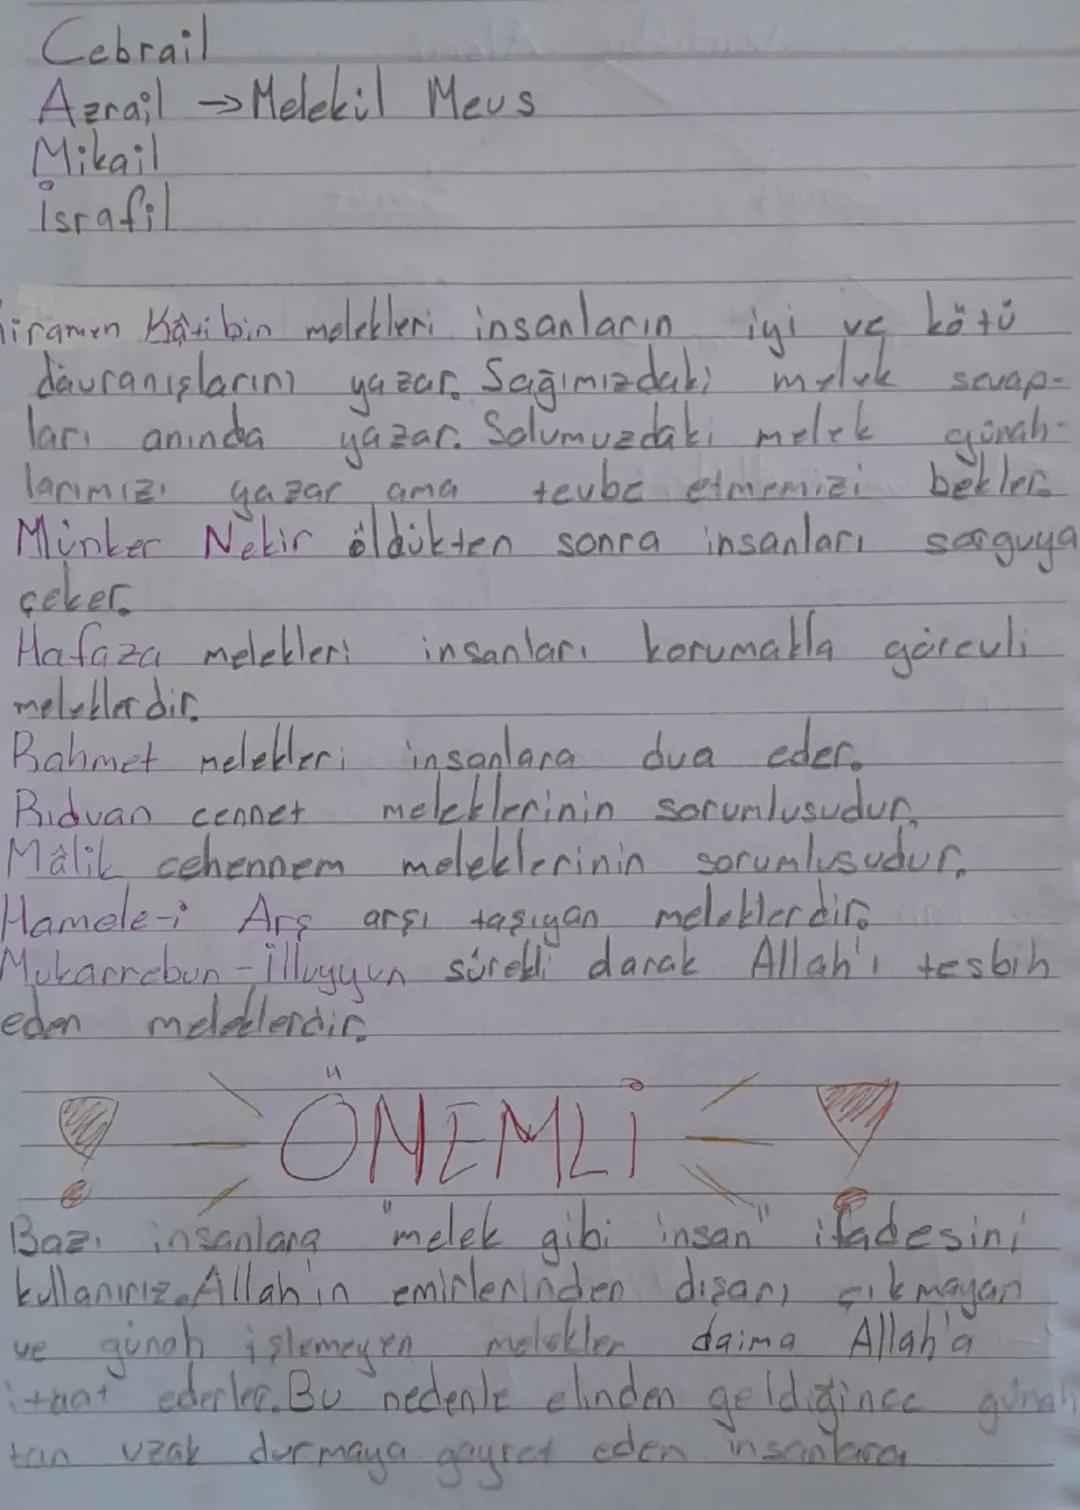 Cebrail
Azrail → Melekil Mevs
Mikail
İsrafil
iramen Kâtibin melekleri insanların iyi ve kötü
davranışlarını yazar. Sağımızdaki melek sevap-
ları anında yazar. Solumuzdaki melek günah-
larımızı yazar ama tevbe etmemizi bekler.
Münker Nekir öldükten sonra insanları sorguya
çeker.
Hafaza melekleri insanları korumakla görevli
meleklerdir.
Rahmet melekleri insanlara dua eder.
Rıdvan cennet meleklerinin sorumlusudur.
Mâlik cehennem meleklerinin sorumlusudur.
Hamele-i Arş arşı taşıyan meleklerdir.
Mukarrebun - İlluyyun sürekli darak Allah'ı tesbih
eden meleklerdir.
! ÖNEMLİ !
Bazı insanlara "melek gibi insan" ifadesini
kullanırız. Allah'ın emirlerinden dışarı çıkmayan
ve günah işlemeyen melekler daima Allah'a
itaat ederler. Bu nedenle elinden geldiğince günah
tan uzak durmaya gayret eden insanlara